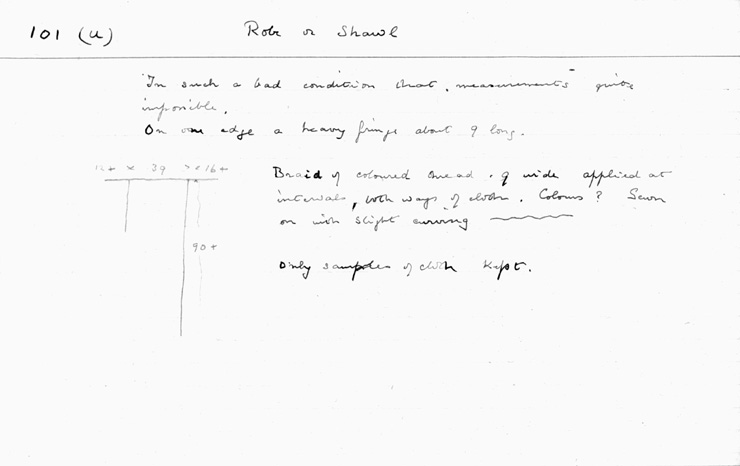 101 (u) Robe or Shawl
In such a bad condition that, measurements quite
impossible.
On one edge a heavy fringe about 9 long.
12+ × 39 > < 16+
Braid of coloured thread .9 wide applied at
intervals, both ways of cloth. Colours? Sewn
on with slight curving
90+
Only samples of cloth kept.